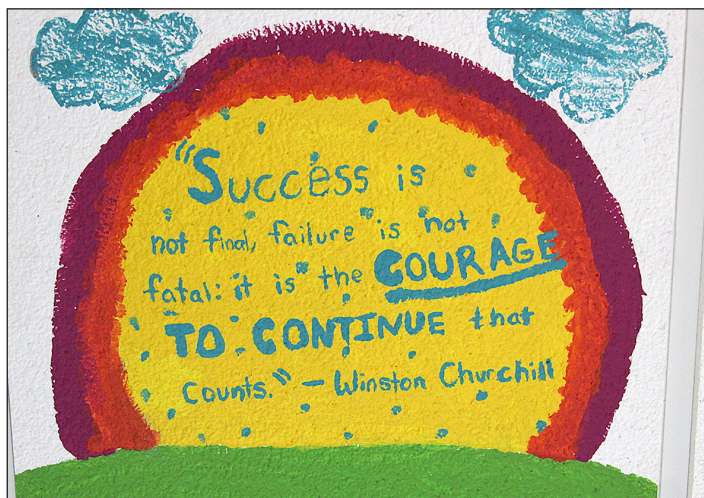 "Success is
not final, failure is not
fatal: it is the COURAGE
TO CONTINUE that
counts." – Winston Churchill